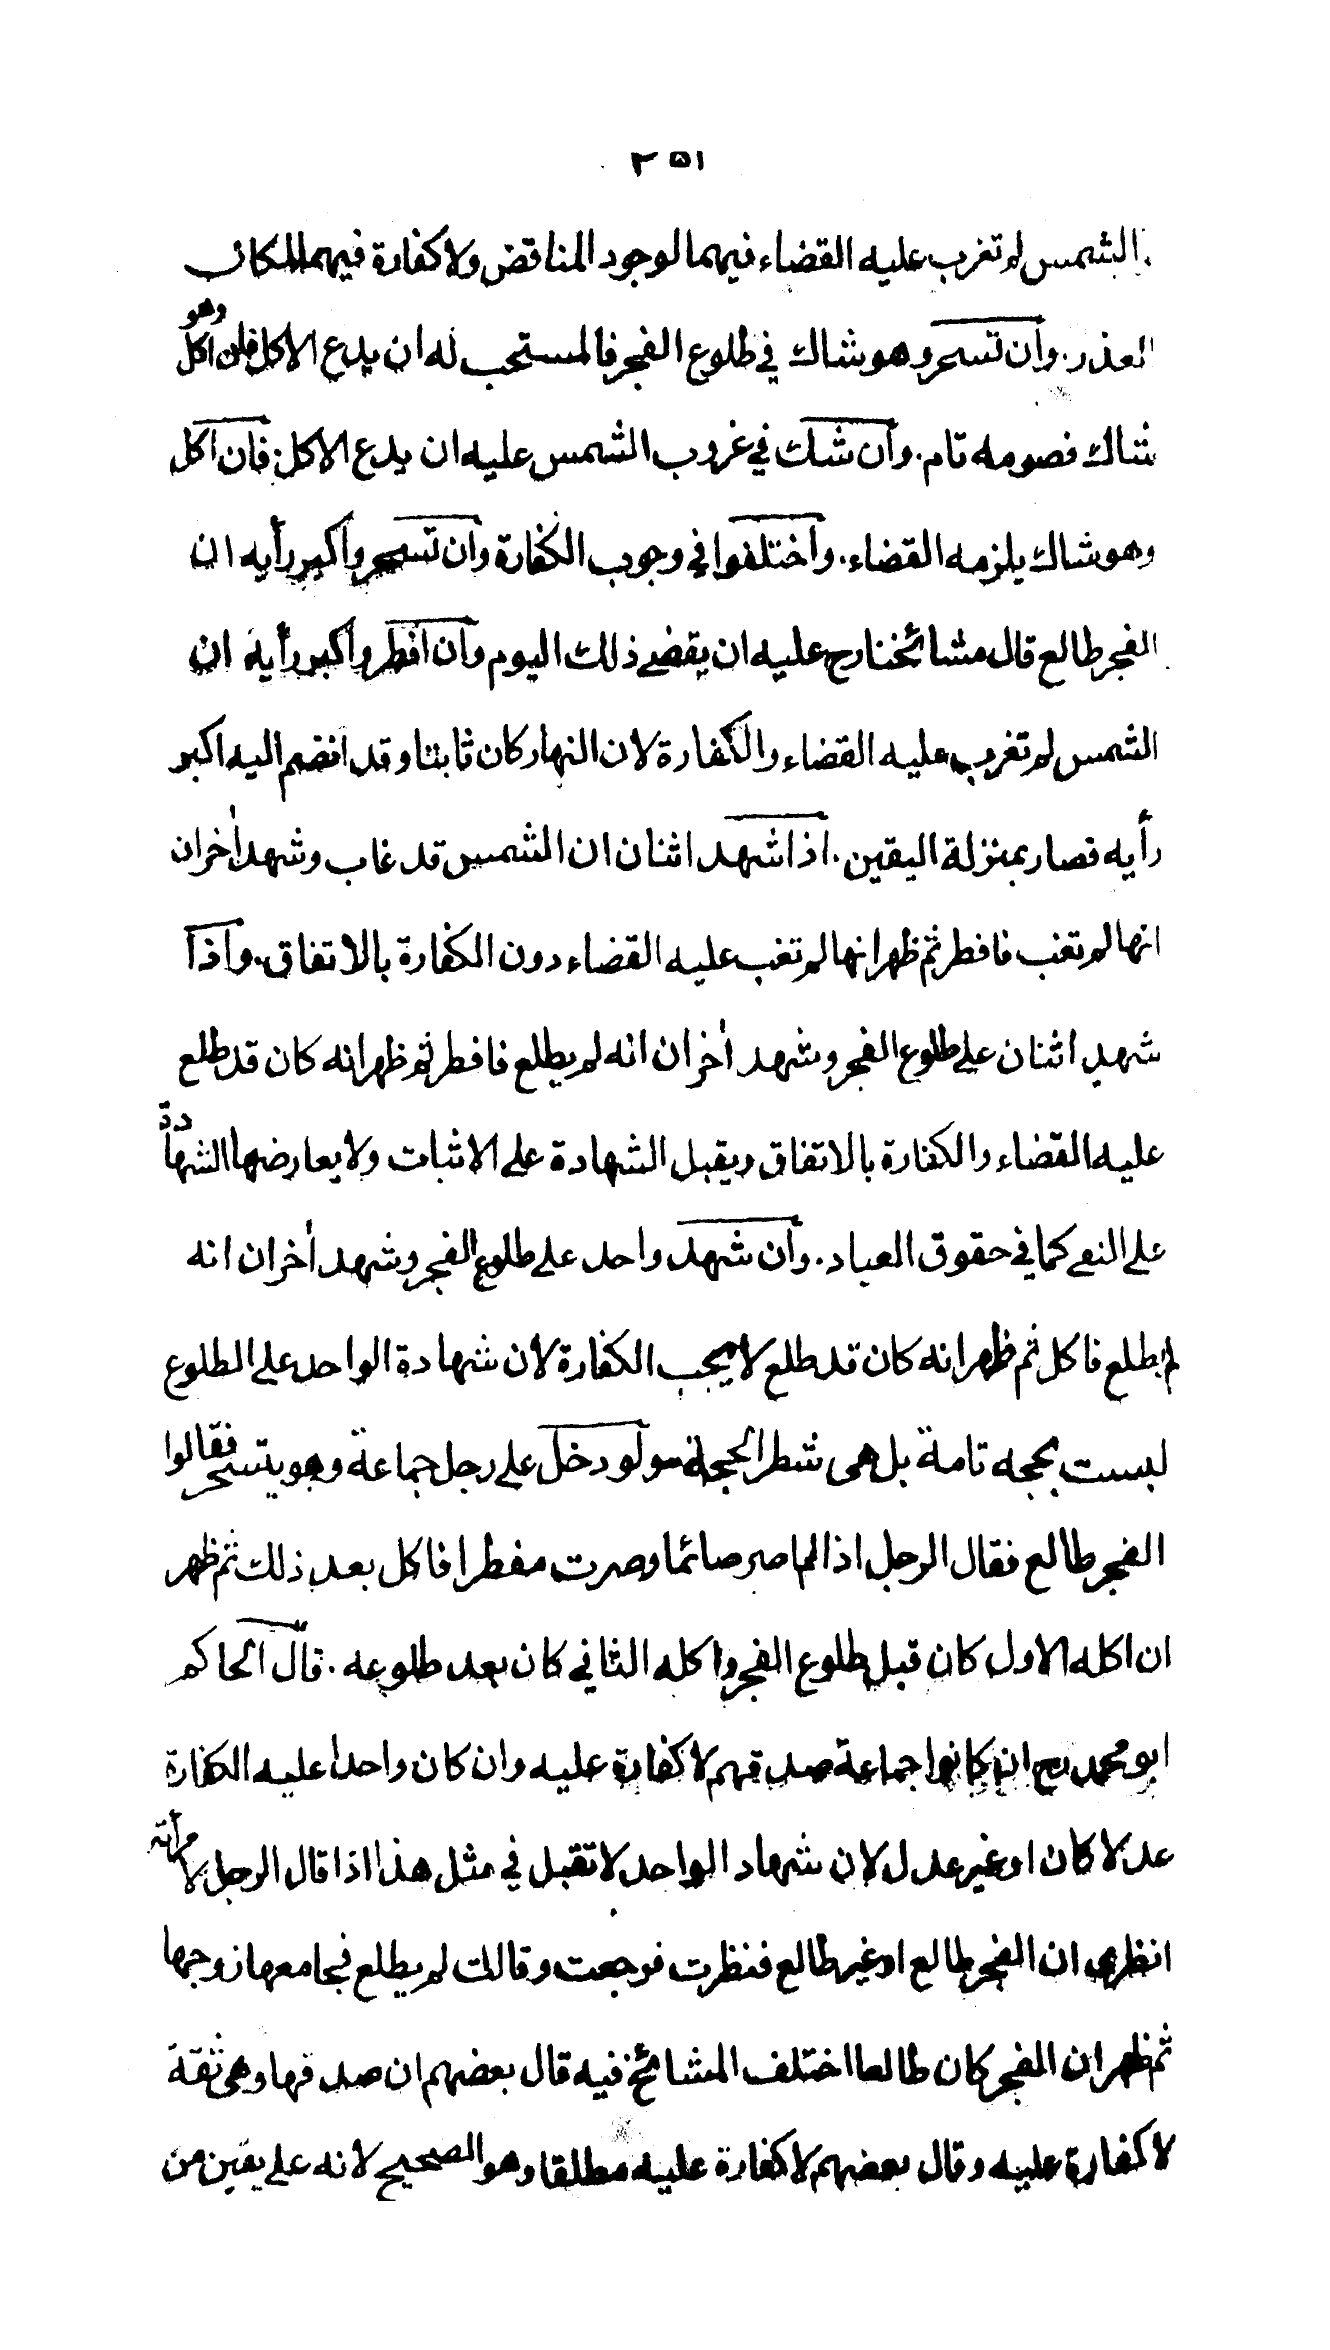 ٣٥١
الشمس لم تغرب عليه القضاء فيهما لوجود المناقض ولا كفارة فيهما لمكان
العذر. وان تسحر وهو شاك في طلوع الفجر فالمستحب له ان يدع الاكل فان اكل وهو
شاك فصومه تام. وان شك في غروب الشمس عليه ان يدع الاكل. فان اكل
وهو شاك يلزمه القضاء. واختلفوا في وجوب الكفارة وان تسحر واكبر رأيه ان
الفجر طالع قال مشائخنا رح عليه ان يقضي ذلك اليوم وان افطر واكبر رأيه ان
الشمس لم تغرب عليه القضاء والكفارة لان النهار كان ثابتا وقد انضم اليه اكبر
رأيه فصار بمنزلة اليقين. اذا شهد اثنان ان الشمس قد غاب وشهد أخران
انها لم تغب فافطر ثم ظهر انها لم تغب عليه القضاء دون الكفارة بالاتفاق. واذا
شهد اثنان على طلوع الفجر وشهد أخران انه لم يطلع فافطر ثم ظهر انه كان قد طلع
عليه القضاء والكفارة بالاتفاق ويقبل الشهادة على الاثبات ولا يعارضها الشهادة
على النفي كما في حقوق العباد. وان شهد واحد على طلوع الفجر وشهد أخران انه
لم يطلع فاكل ثم ظهر انه كان قد طلع لا يجب الكفارة لان شهادة الواحد على الطلوع
ليست بحجه تامة بل هي شطر الحجة ولو دخل على رجل جماعة وهو يتسحر فقالوا
الفجر طالع فقال الرجل اذا لم اصر صائما وصرت مفطرا فاكل بعد ذلك ثم ظهر
ان اكله الاول كان قبل طلوع الفجر واكله الثاني كان بعد طلوعه. قال الحاكم
ابو محمد رح ان كانوا جماعة صدقهم لا كفارة عليه وان كان واحدا عليه الكفارة
عدلا كان او غير عدل لان شهاد الواحد لا تقبل في مثل هذا اذا قال الرجل لامرأته
انظري ان الفجر طالع او غير طالع فنظرت فرجعت وقالت لم يطلع فجامعها زوجها
ثم ظهر ان الفجر كان طالعا اختلف المشائخ فيه قال بعضهم ان صدقها وهي ثقة
لا كفارة عليه وقال بعضهم لا كفارة عليه مطلقا وهو الصحيح لانه على يقين من